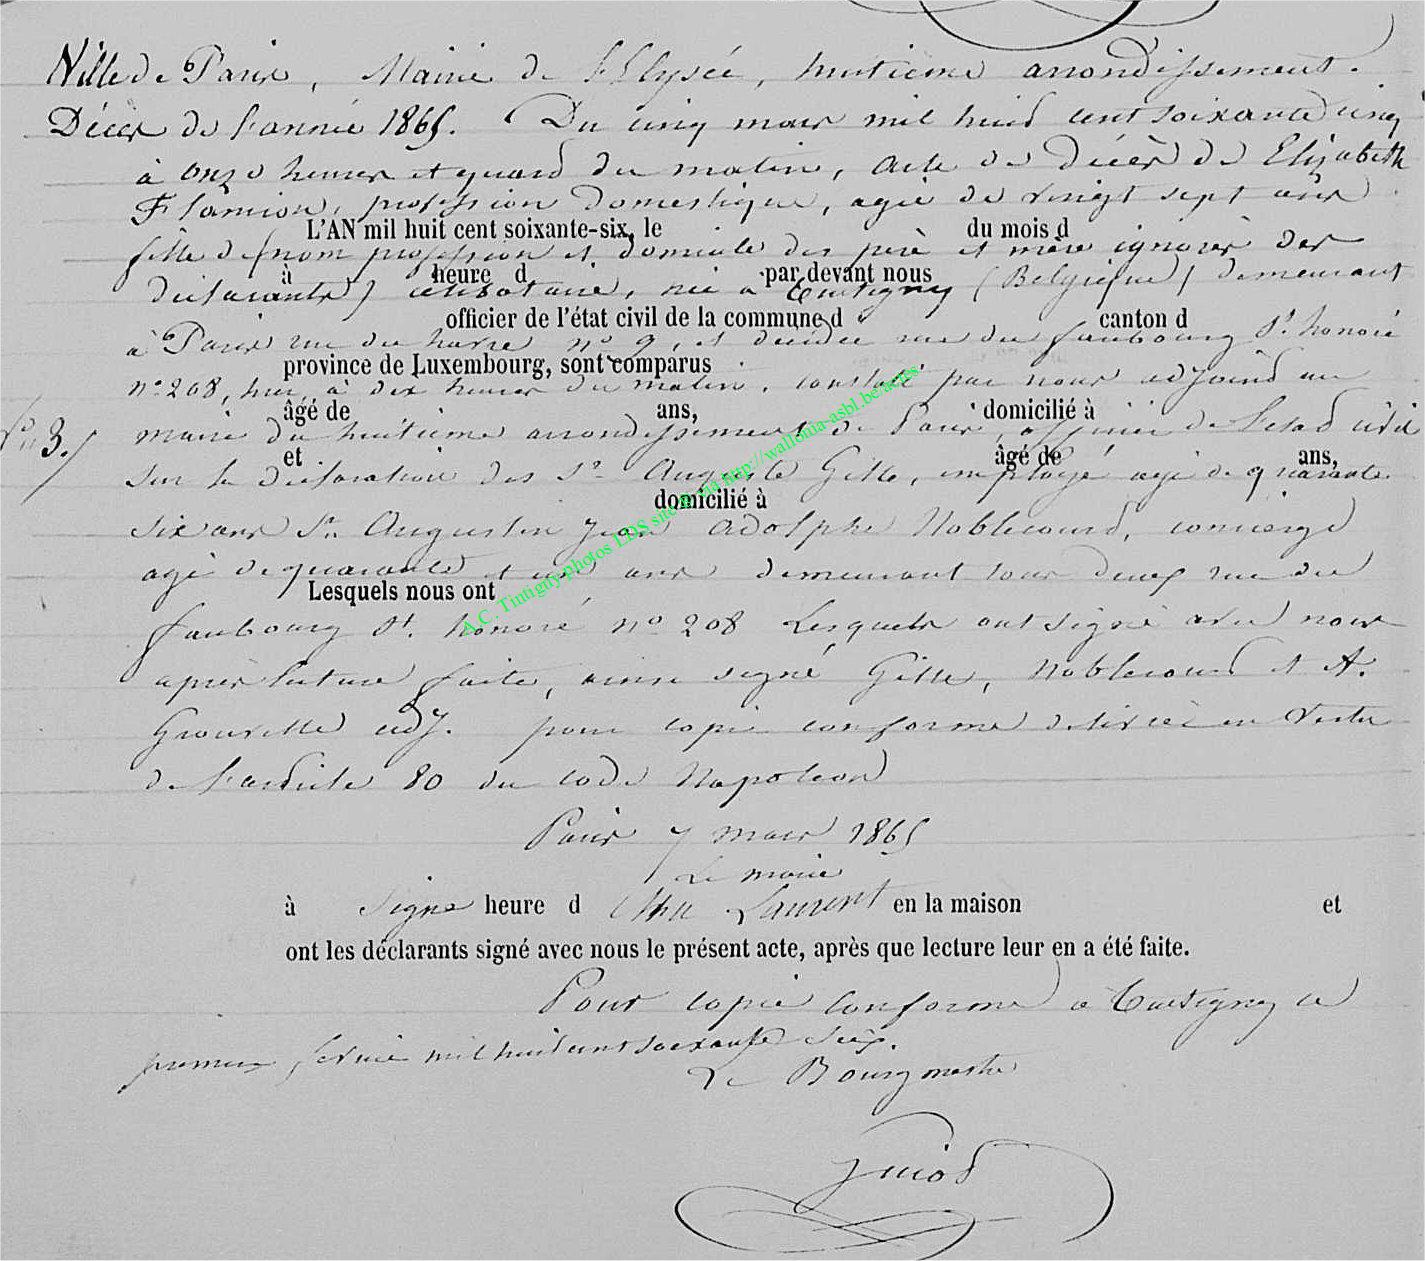 Ville de Paris, Mairie de l'Elysée, huitième arrondissement.
Décès de l'année 1865. Du cinq mars mil huit cent soixante cinq
à onze heures et quart du matin, acte de décès de Elizabeth
Flamion, profession domestique, agée de vingt sept ans
L'AN mil huit cent soixante-six, le du mois d
fille de (nom profession et domicile des père et mère ignorés des
à heure d par devant nous
déclarants) célibataire, née à Tintigny (Belgique) demeurant
officier de l'état civil de la commune d canton d
à Paris rue du havre n° 9, et décédée rue du faubourg St honoré
province de Luxembourg, sont comparus
n° 208, hier, à dix heures du matin, constaté par nous adjoint au
âgé de ans, domicilié à
N° 3.
maire du huitième arrondissement de Paris, officier de l'état civil
et âgé de ans,
sur la déclaration des Sr Auguste Gille, employé agé de quarante
domicilié à
six ans Sr Augustin Jean Adolphe Noblecourt, concierge
agé de quarante et un ans demeurant tous deux rue du
Lesquels nous ont
faubourg St. honoré n° 208 Lesquels ont signé avec nous
après lecture faite, ainsi signé Gille, Noblecourt et A.
Grouvelle adj. pour copie conforme délivrée en vertu
de l'article 80 du code Napoléon
Paris 7 mars 1865
Le maire
à signé heure d Laurent en la maison et
ont les déclarants signé avec nous le présent acte, après que lecture leur en a été faite.
Pour copie conforme à Tintigny le
premier février mil huit cent soixante six.
Le Bourgmestre
A.C. Tintigny-photos LDS site & via http://wallonia-asbl.be/actes